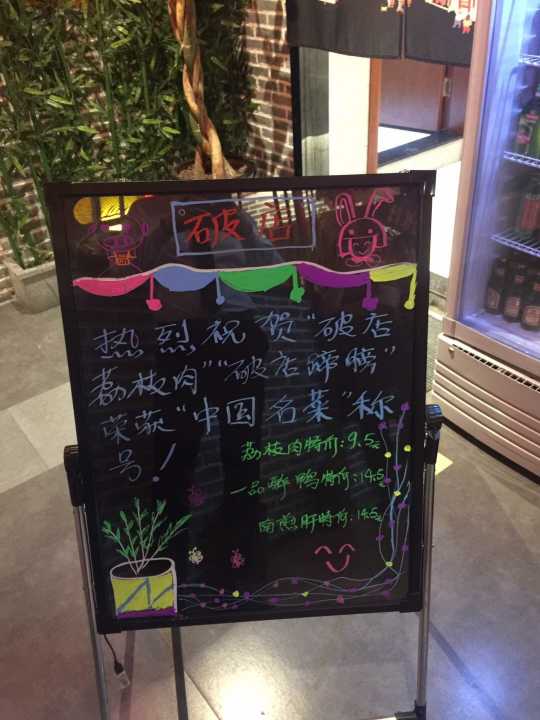 破店
热烈祝贺"破店
荔枝肉""破店蹄膀"
荣获"中国名菜"称
号!
荔枝肉特价:9.5元
一品醉鸭特价:14.5元
南煎肝特价:14.5元